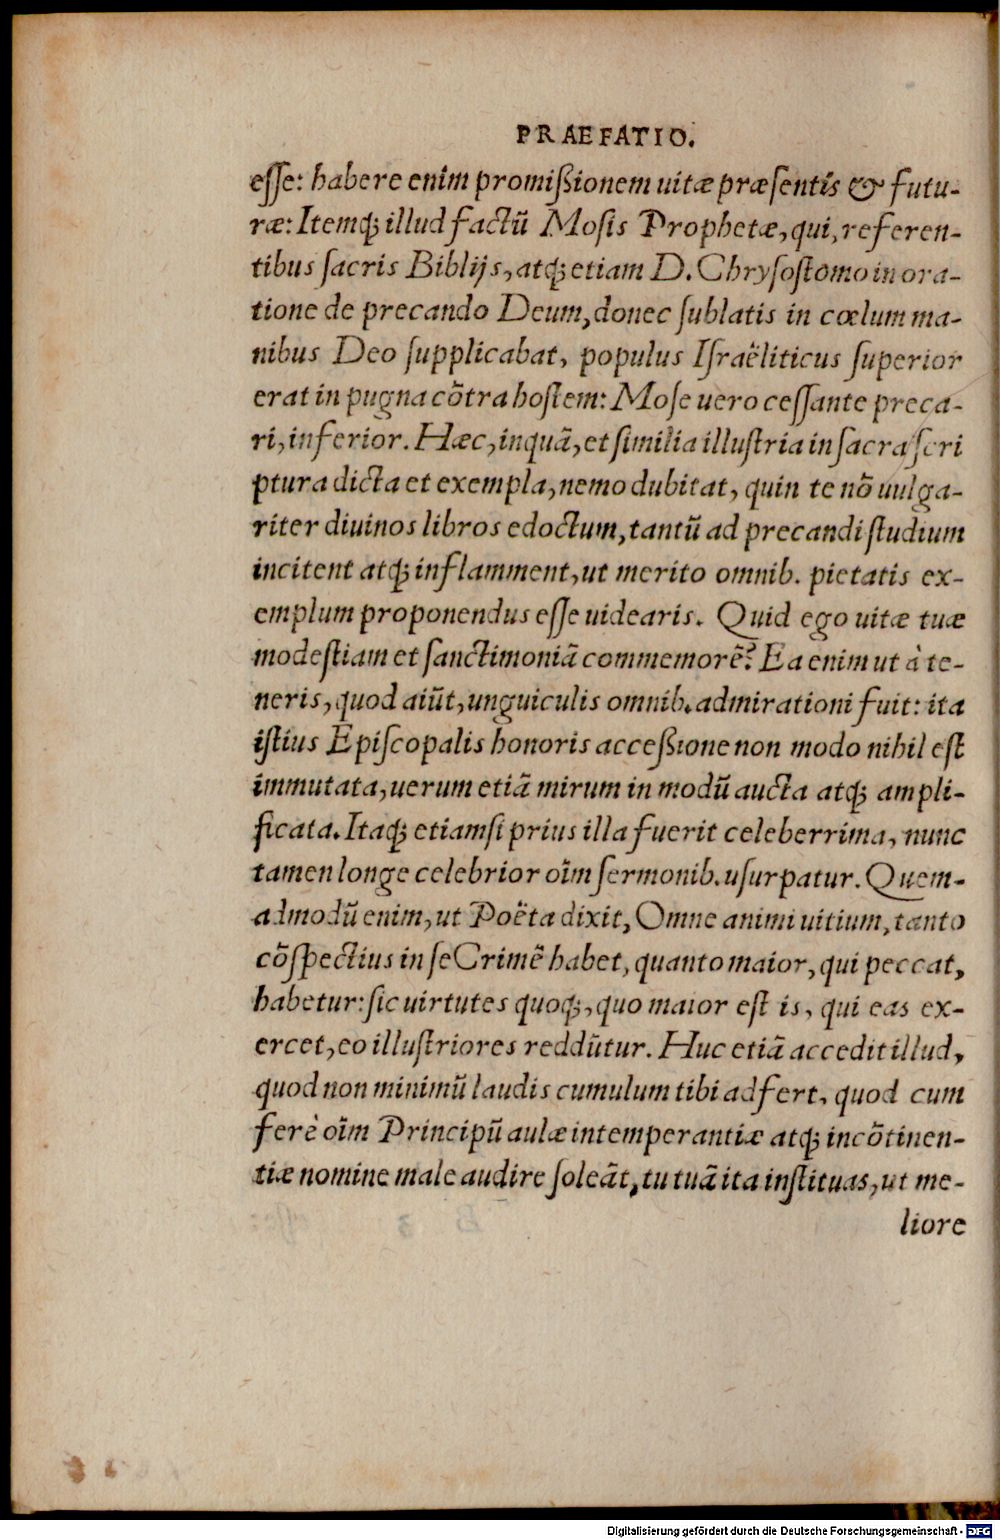 PRAEFATIO.
eſſe: habere enim promißionem uitæ præſentis & futu-
ræ: Itemq; illud factũ Moſis Prophetæ, qui, referen-
tibus ſacris Biblijs, atq; etiam D. Chryſoſtomo in ora-
tione de precando Deum, donec ſublatis in cœlum ma-
nibus Deo ſupplicabat, populus Iſraëliticus ſuperior
erat in pugna cõtra hoſtem: Moſe uero ceſſante preca-
ri, inferior. Hæc, inquã, et ſimilia illuſtria in ſacra ſcri
ptura dicta et exempla, nemo dubitat, quin te nõ uulga-
riter diuinos libros edoctum, tantũ ad precandi ſtudium
incitent atq; inflamment, ut merito omnib. pietatis ex-
emplum proponendus eſſe uidearis. Quid ego uitæ tuæ
modeſtiam et ſanctimoniã commemorẽ? Ea enim ut à te-
neris, quod aiũt, unguiculis omnib. admirationi fuit: ita
iſtius Epiſcopalis honoris acceßione non modo nihil eſt
immutata, uerum etiã mirum in modũ aucta atq; ampli-
ficata. Itaq; etiamſi prius illa fuerit celeberrima, nunc
tamen longe celebrior oĩm ſermonib. uſurpatur. Quem-
admodũ enim, ut Poëta dixit, Omne animi uitium, tanto
cõſpectius in ſe Crimẽ habet, quanto maior, qui peccat,
habetur: ſic uirtutes quoq;, quo maior eſt is, qui eas ex-
ercet, eo illuſtriores reddũtur. Huc etiã accedit illud,
quod non minimũ laudis cumulum tibi adfert, quod cum
ferè oĩm Principũ aulæ intemperantiæ atq; incõtinen-
tiæ nomine male audire ſoleãt, tu tuã ita inſtituas, ut me-
liore
Digitalisierung gefördert durch die Deutsche Forschungsgemeinschaft - DFG